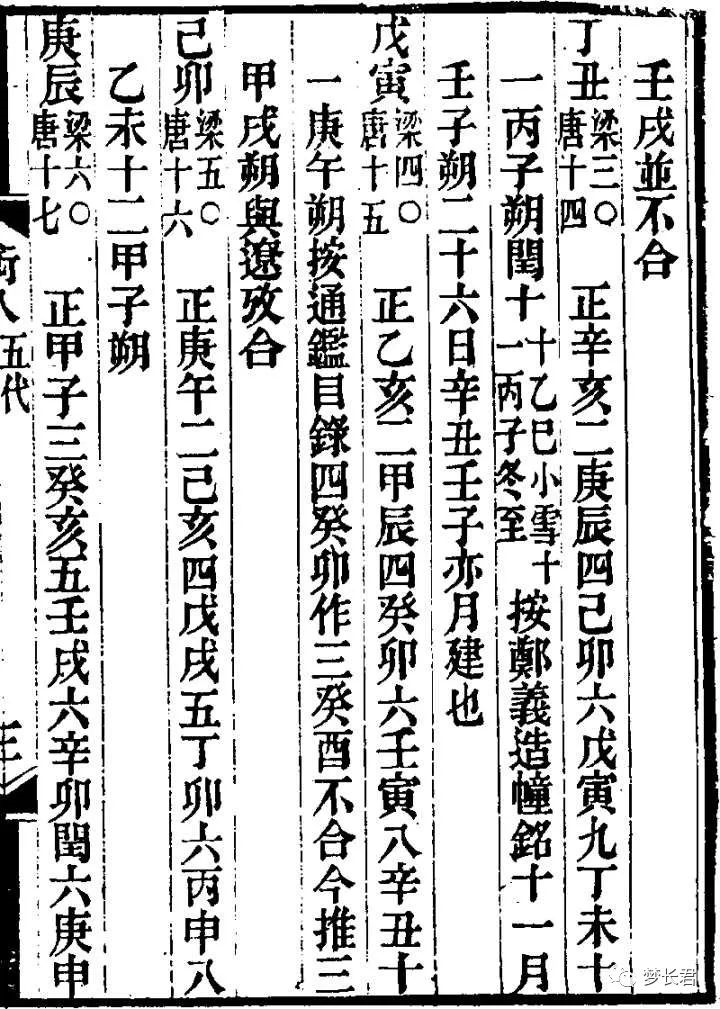 壬戌並不合
丁丑梁三〇唐十四 正辛亥二庚辰四己卯六戊寅九丁未十
一丙子朔閏十十乙巳小雪十一丙子冬至 按鄭義造幢銘十一月
壬子朔二十六日辛丑壬子亦月建也
戊寅梁四〇唐十五 正乙亥二甲辰四癸卯六壬寅八辛丑十
一庚午朔按通鑑目錄四癸卯作三癸酉不合今推三
甲戌朔與遼攷合
己卯梁五〇唐十六 正庚午二己亥四戊戌五丁卯六丙申八
乙未十二甲子朔
庚辰梁六〇唐十七 正甲子三癸亥五壬戌六辛卯閏六庚申
五代
梦长君